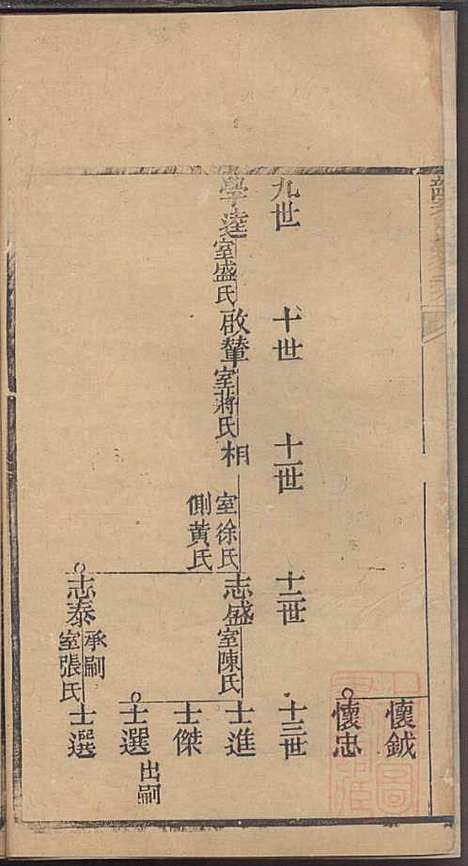 懷鉞
懷忠
九世
十世
十一世
十二世
十三世
學逵室盛氏
啟輦室蔣氏
相
室徐氏
側黃氏
志盛室陳氏
士進
士傑
士選出嗣
志泰承嗣
室張氏
士選